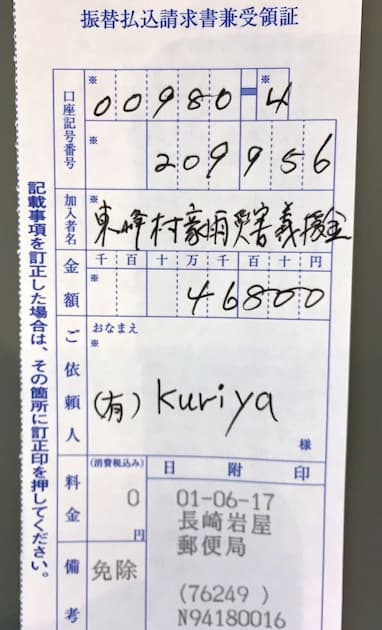 振替払込請求書兼受領証
口座記号番号
※
00980-4
※
※
209956
加入者名
※
東峰村豪雨災害義援金
金額
千百十万千百十円
※
46800
ご依頼人
おなまえ
※
(有) kuriya
様
料金
(消費税込み)
0
円
備考
免除
日附印
01-06-17
長崎岩屋
郵便局
(76249 )
N94180016
記載事項を訂正した場合は、その箇所に訂正印を押してください。